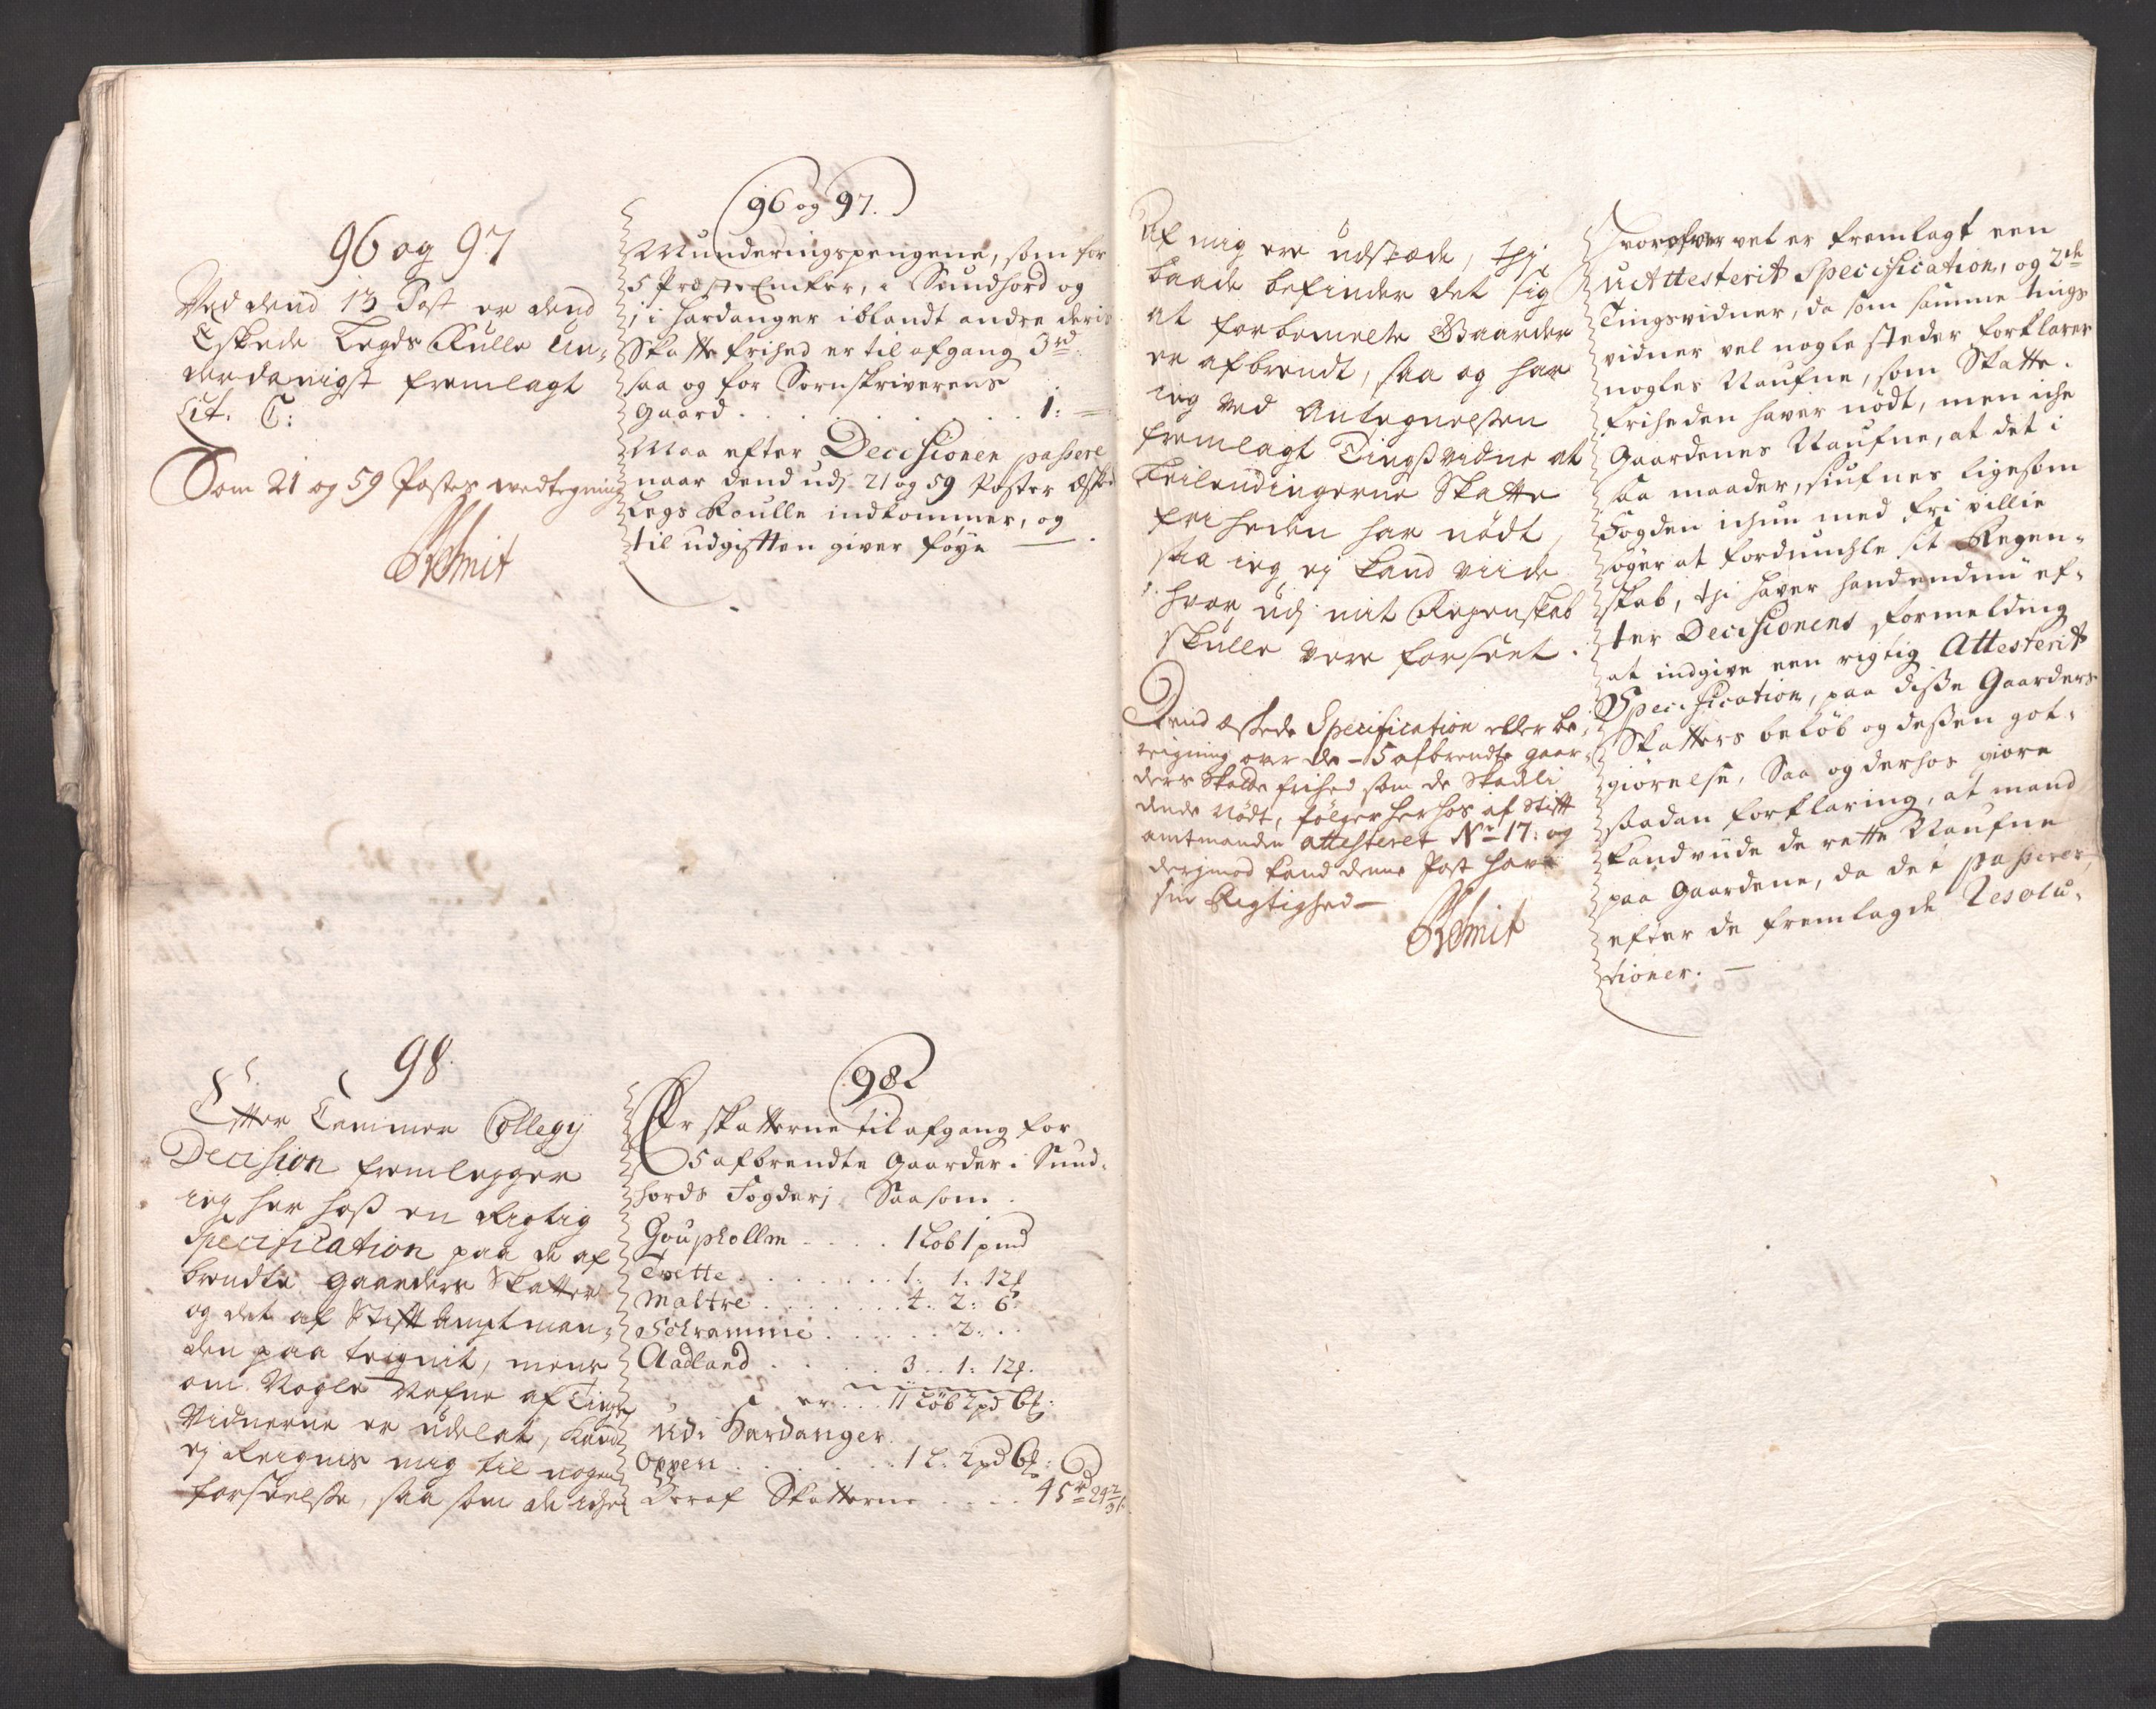 96 og 97
Ved dend 13 Post er dend
Eskede Legds Rulle Un-
derdanigst fremlagt
Lit. C:
Som 21 og 59 Postes vedtegning
Schmit
96 og 97.
Munderingspengene, som for
5 Præste Encker, i Sundhord og
1 i Hardanger iblandt andre deris
Skatte frihed er til afgang 3 rd
saa og for Sornskriverens
gaard . . . . . . . . . . 1: =
Maa efter Decisionen passere
naar dend udj 21 og 59 Poster æsked
Legs Roulle indkommer, og
til udgiften giver føye —
98.
Efter Cammer Collegij
Decision fremlegger
ieg her hoss en Rigtig
Specification paa de af
brendte gaarders Skatter
og det af Stift Amptman-
den paa teignit, mens
om Nogle Nafne af Tings
Vidnerne er udelat, kand
ej Reignis mig til nogen
forseelse, saa som de iche
98.
Er skatterne til afgang for
5 afbrendte Gaarder i Sund-
hords Fogderi, Saasom.
Goupholm . . . . 1 Løb 1 pund
Tvette . . . . . . . 1: 1: 12 ℔
Maltre . . . . . . . 4: 2: 6
Schramme . . . . . . 2: . .
Aadland . . . . . 3 . . 1: 12 ℔.
er . . 11 Løb 2 pd 6 ℔:
Udi Hardanger
Oppen . . . . . . . 1 L: 2 pd 6 ℔:
Deraf Skatterne . . . . 45 rd
Af mig ere udstæde, thj
baade befinder det sig
at forbemelte Gaarder
er afbrendt, saa og har
ieg ved Antegnelsen
fremlagt Tingsvidne at
beilendingerne Skatte
friheden har nødt,
saa ieg ej kand viide
hvor udj mit Regenskab
skulle vere forseet.
Dend æskede Specification eller be-
reigning over de - 5 afbrendte gaar-
ders Skatte frihed som de Skadli
dende Nødt, følger herhos af Stift
amtmanden attesteret No 17: og
derjmod kand denne Post have
sin Rigtighed —
Schmit
Hvorofver vel er fremlagt een
uAttesterit Specification, og 2de
Tingsvidner, da som samme tings
vidner vel nogle steder forklarer
nogles Naufne, som Skatte-
friheden haver nødt, men iche
Gaardenes Naufne, at det i
saa maader, siufnes ligesom
Fogden ichun med fri villie
søger at fordunchle sit Regen-
skab, thi haver hand endnu ef-
ter Decisionens formelding
at indgive een rigtig Attesterit
Specification, paa disse Gaarders
Skatters beløb og dessen got-
giørelse, Saa og derhos giøre
saadan forklaring, at mand
kand viide de rette Naufne
paa Gaardene, da det passerer,
efter de fremlagde Resolu-
tioner. —